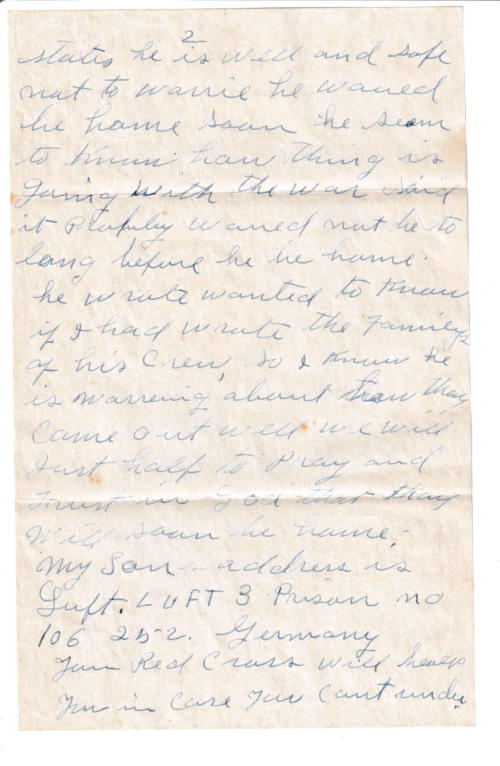 2
states he is well and safe
not to warrie he waued
be home soon he seem
to know how thing is
going with the war said
it Probuly waued not be to
long before he be home.
he wrote wanted to know
if I had wrote the Familys
of his Crew, so I know he
is warreing about how thay
Came out well we will
Just half to Pray and
trust in God that thay
will soon be home.
My Son - address is
Luft. LUFT 3 Prison no
106 252. Germany
Your Red Cross will healp
You in Case you Cant under